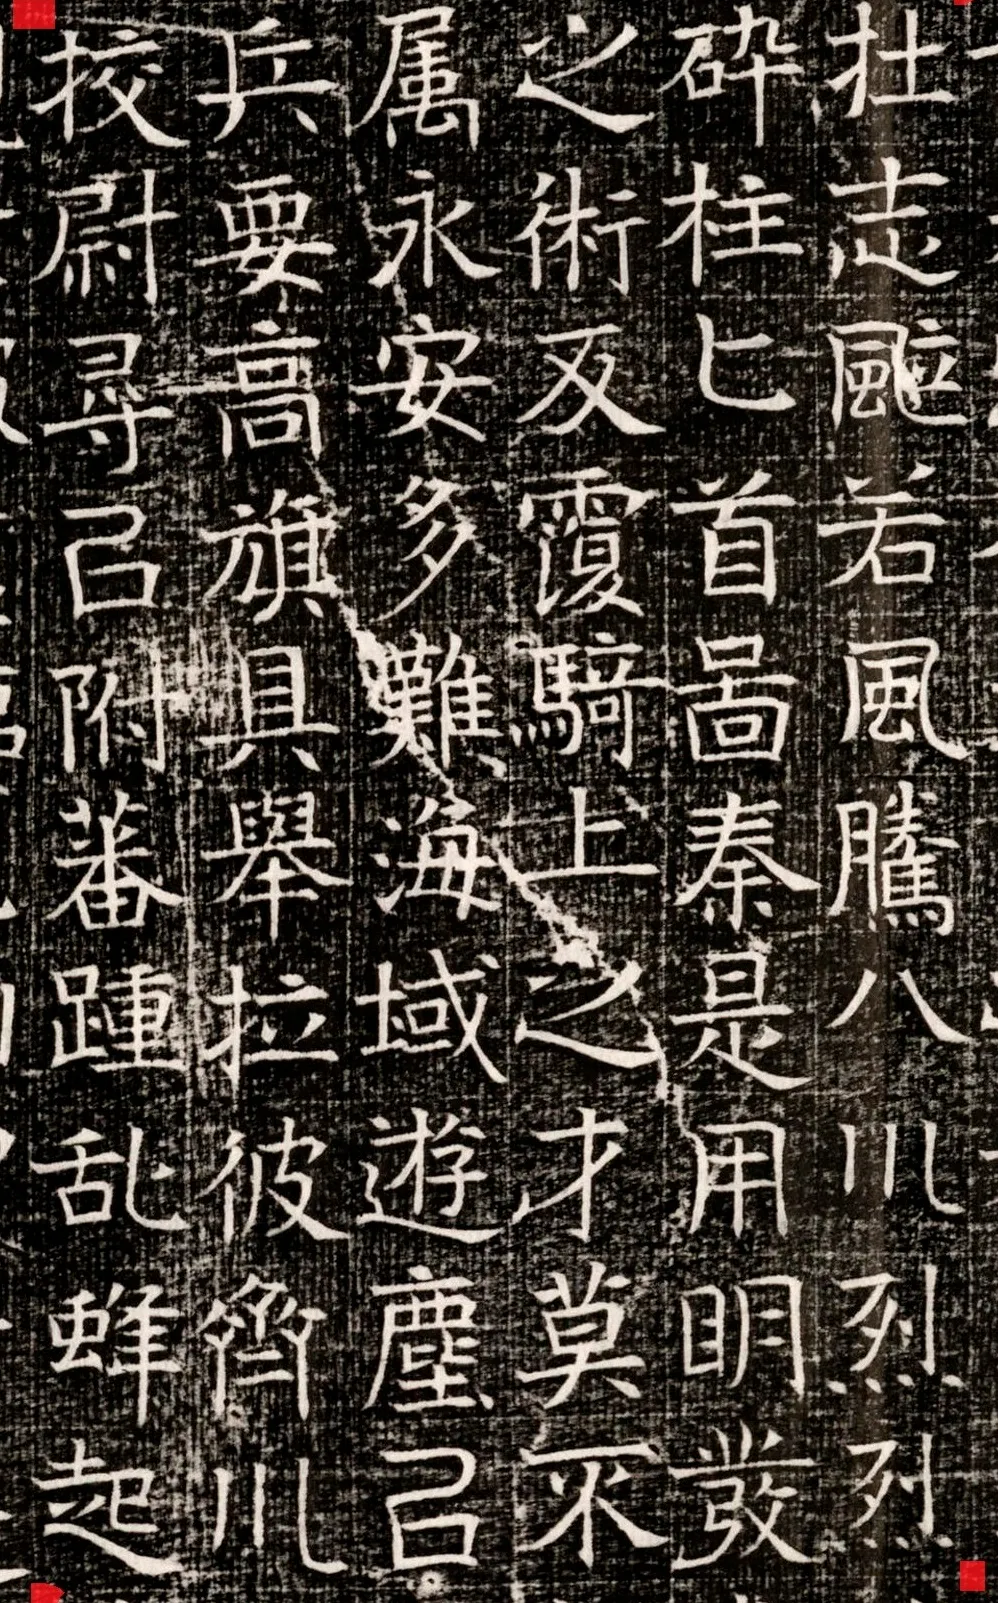 壮志颯若風騰八川烈烈
砕柱匕首啚秦是用明發
之術及覆騎上之才莫不
属永安多難海域遊塵己
兵要高旗具舉拉彼齊川
挍尉尋己附蕃踵乱蜂起